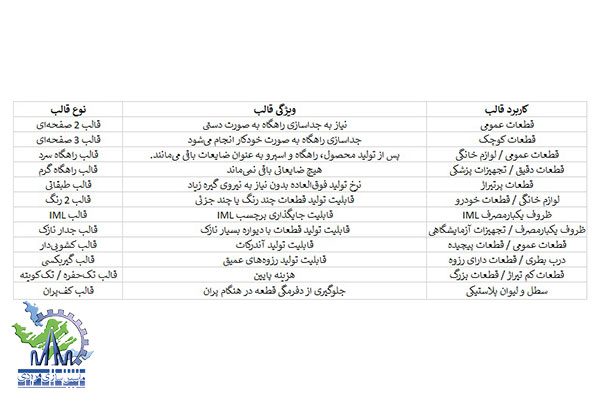 نوع قالب	ویژگی قالب	کاربرد قالب
قالب 2 صفحه‌ای	نیاز به جداسازی راهگاه به صورت دستی	قطعات عمومی
قالب 3 صفحه‌ای	جداسازی راهگاه به صورت خودکار انجام می‌شود	قطعات کوچک
قالب راهگاه سرد	پس از تولید محصول، راهگاه و اسپرو به عنوان ضایعات باقی می‌مانند.	قطعات عمومی / لوازم خانگی
قالب راهگاه گرم	هیچ ضایعاتی باقی نمی‌ماند	قطعات دقیق / تجهیزات پزشکی
قالب طبقاتی	نرخ تولید فوق‌العاده بدون نیاز به نیروی گیره زیاد	قطعات پرتیراژ
قالب 2 رنگ	قابلیت تولید قطعات چند رنگ یا چند جزئی	لوازم خانگی / قطعات خودرو
قالب IML	قابلیت جایگذاری برچسب IML	ظروف یکبارمصرف IML
قالب جدار نازک	قابلیت تولید قطعات با دیواره بسیار نازک	ظروف یکبارمصرف / تجهیزات آزمایشگاهی
قالب کشویی‌دار	قابلیت تولید آندرکات	قطعات عمومی / قطعات پیچیده
قالب گیربکسی	قابلیت تولید رزوه‌های عمیق	درب بطری / قطعات دارای رزوه
قالب تک‌حفره / تک‌کویته	هزینه پایین	قطعات کم تیراژ / قطعات بزرگ
قالب کف‌پران	جلوگیری از دفرمگی قطعه در هنگام پران	سطل و لیوان پلاستیکی